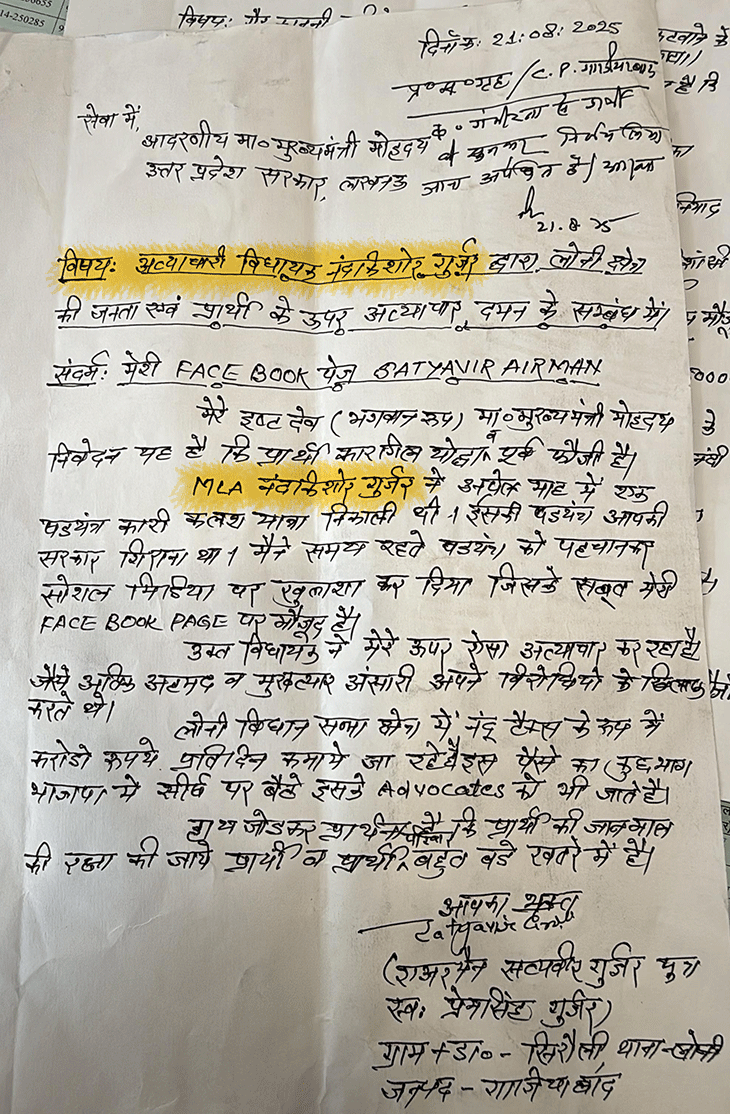 14-250285
विषय:
दिनाँक: 21:08:2025
प्र०स०गृह / C.P. गाजियाबाद
सेवा में,
आदरणीय मा० मुख्यमंत्री मोहदय
उत्तर प्रदेश सरकार, लखनऊ
जाच अपेक्षित है।
21.8.25
विषय: अत्याचारी विधायक नंदकिशोर गुर्जर द्वारा लोनी क्षेत्र
की जनता एवं प्रार्थी के ऊपर अत्याचार, दमन के सम्बंध में।
संदर्भ: मेरी FACE BOOK पेज SATYAVIR AIRMAN
मेरे इष्ट देव (भगवान रूप) मा० मुख्यमंत्री मोहदय
निवेदन यह है कि प्रार्थी कारगिल योद्धा व पूर्व फौजी है।
MLA नंदकिशोर गुर्जर ने अप्रेल माह में एक
षडयंत्र कारी कलश यात्रा निकाली थी। इसकी षडयंत्र आपकी
सरकार गिराना था। मैने समय रहते षडयंत्र को पहचानकर
सोशल मिडिया पर खुलाशा कर दिया जिसके सबूत मेरी
FACE BOOK PAGE पर मौजूद है।
उक्त विधायक ने मेरे ऊपर ऐसा अत्याचार कर रहा है।
जैसे अतिक अहमद व मुखत्यार अंसारी अपने विरोधियो के खिलाफ
करते थे।
लोनी विधान सभा क्षेत्र में नंदू टैक्स के रूप में
करोडो रूपये प्रतिदिन कमाये जा रहे है इस पैसे का कुछ भाग
भाजपा मे शीर्ष पर बैठे इसके Advocates को भी जाते है।
हाथ जोडकर प्रार्थना है कि प्रार्थी की जानमाल
की रक्षा की जाये प्रार्थी व प्रार्थी परिवार बहुत बडे खतरे में है।
आपका भक्त
(एअरमैन सत्यवीर गुर्जर पुत्र
स्व: प्रेमसिंह गुर्जर)
ग्राम + डा० - सिरौली थाना - लोनी
जनपद - गाजियाबाद